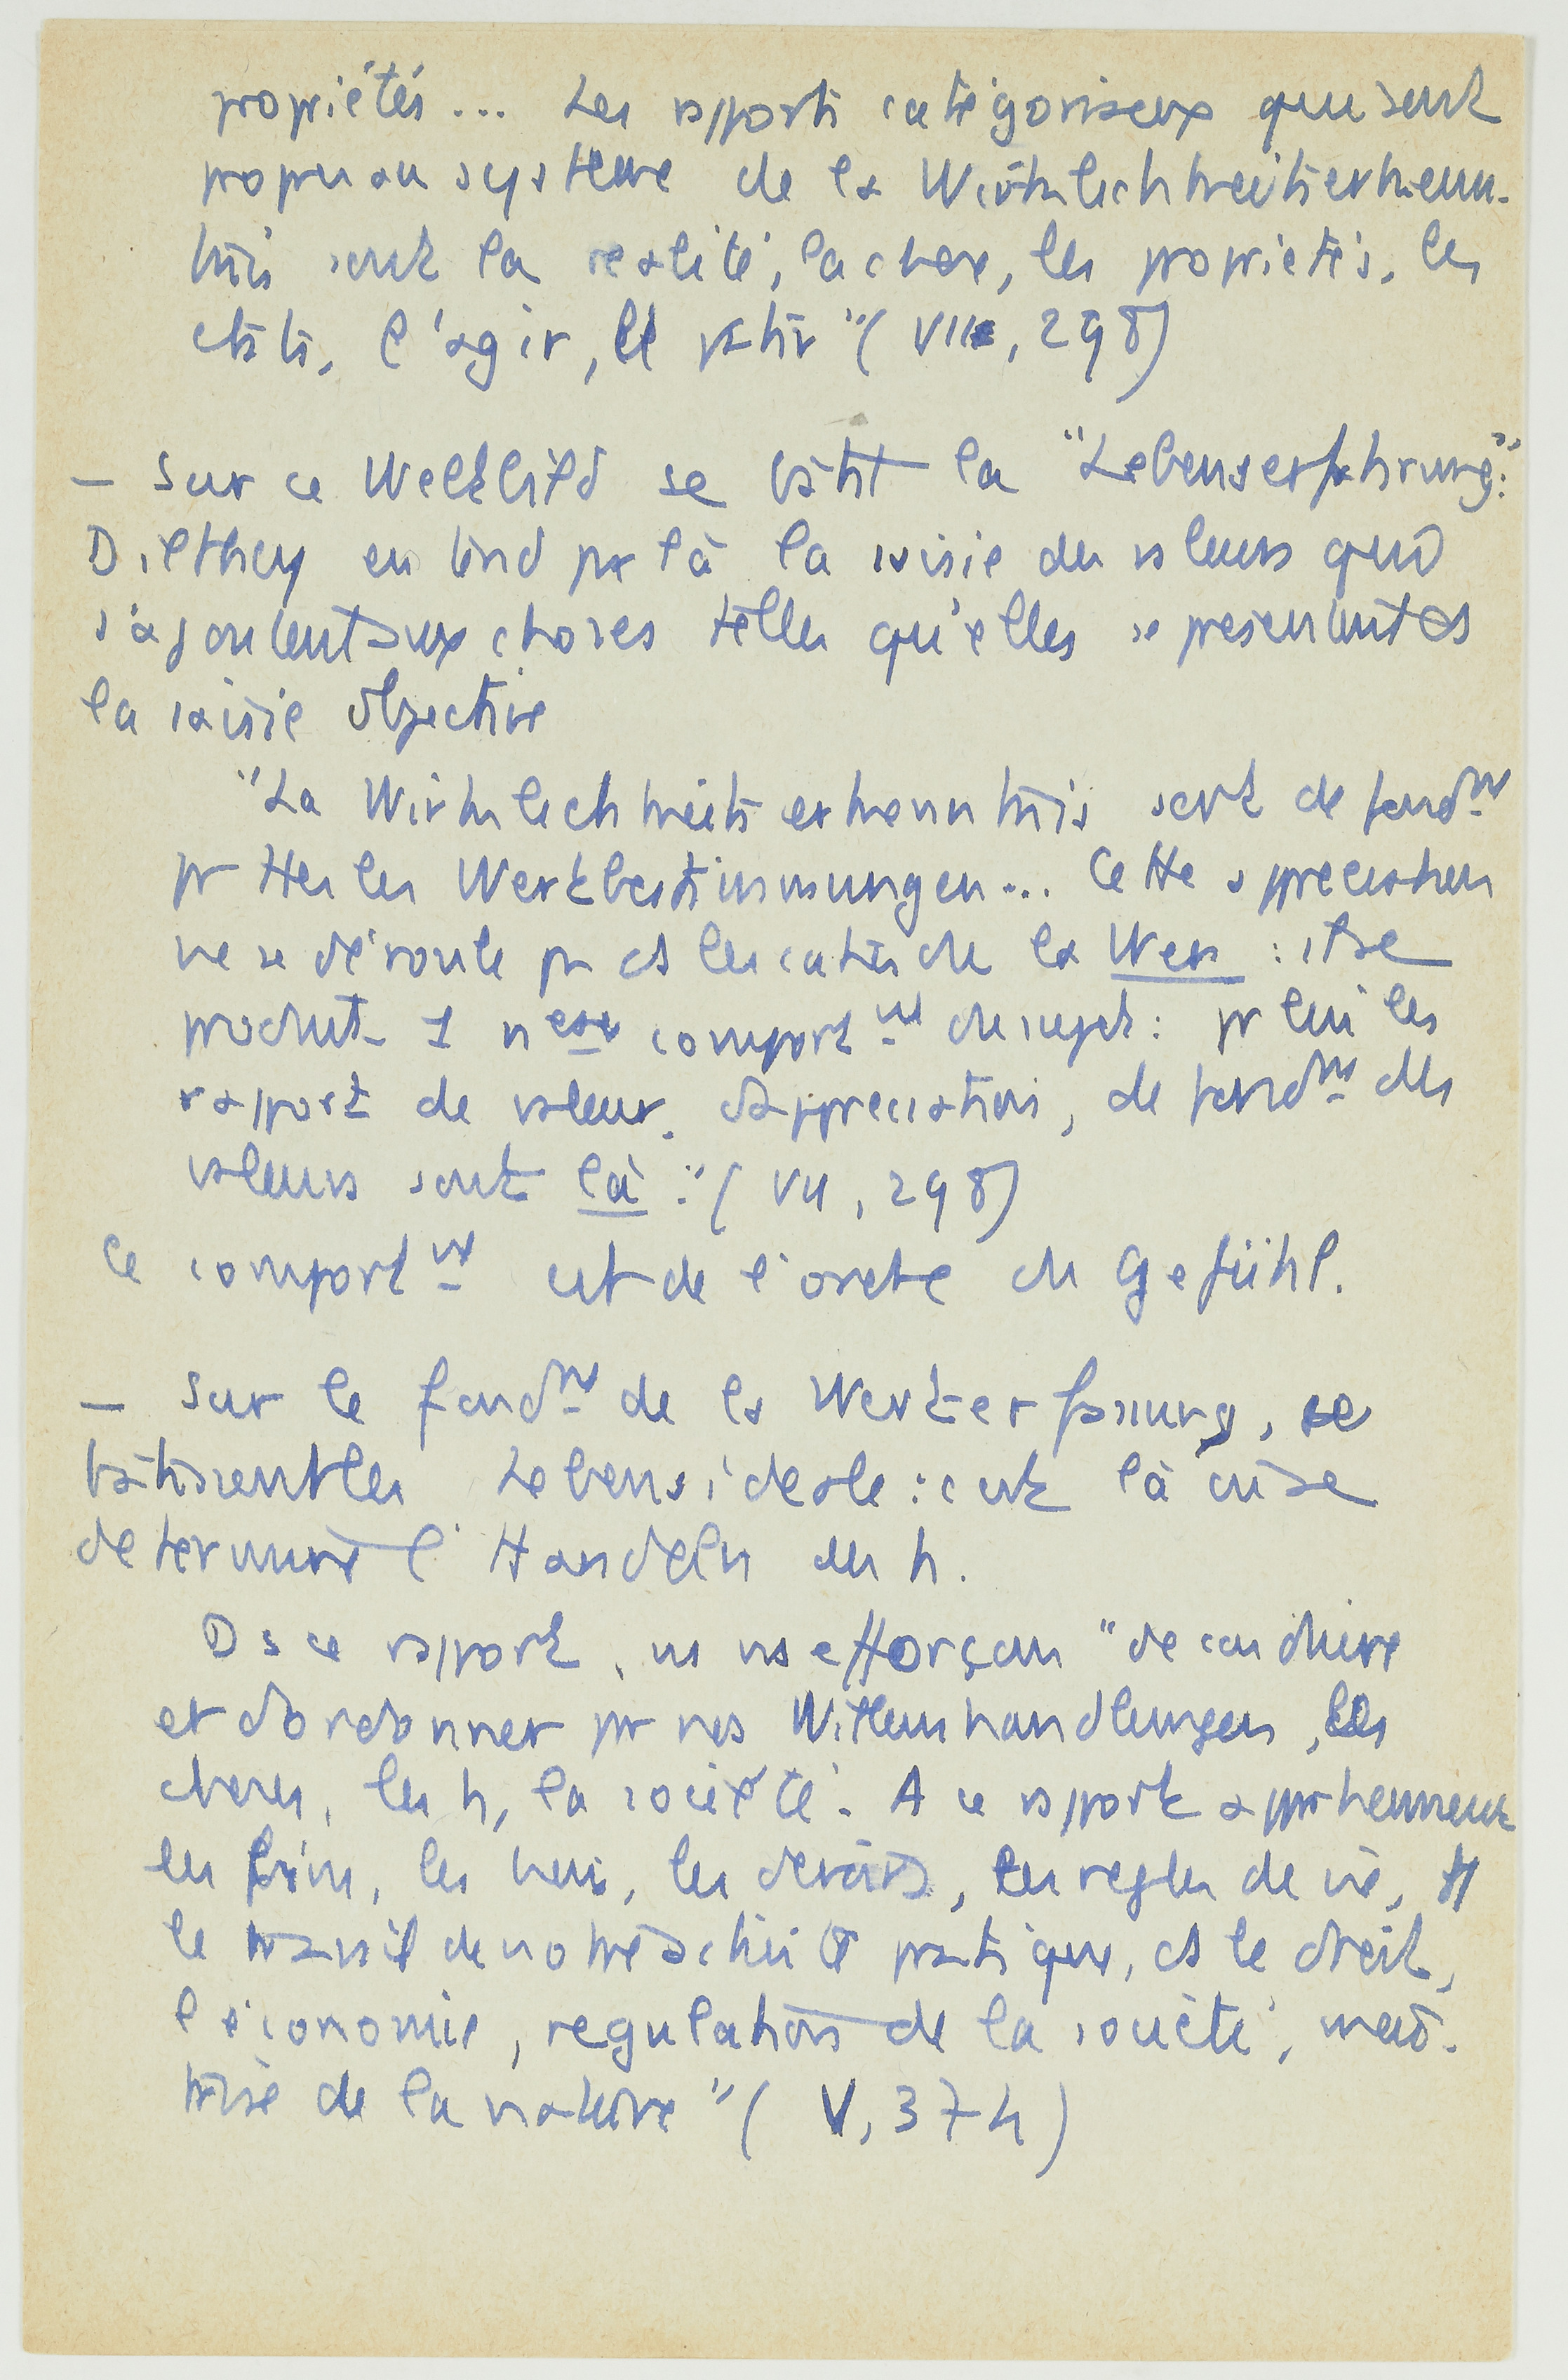 propriétés... Les rapports catégoriaux qui sont
propres au système de la Wirklichkeitserkenn-
tnis sont la réalité, la chose, les propriétés, les
états, l'agir, le pâtir" (VII, 298)
– Sur ce Weltbild se bâtit la "Lebenserfahrung":
Dilthey entend par là la saisie des valeurs qui
s'ajoutent aux choses telles qu'elles se présentent ds
la saisie objective
"La Wirklichkeitserkenntnis sert de fondmt
pr ttes les Wertbestimmungen... Cette appréciation
ne se déroule pas ds les catég de la : il se
produit 1 comportmt du sujet : pr lui les
rapports de valeur, d'appréciation, de fondmt des
valeurs sont là." (VII, 298)
Ce comportmt est de l'ordre du Gefühl.
– Sur le fondmt de la Werterfassung, se
bâtissent les Lebensideale : c'est là ce
détermine l'Handeln des h.
Ds ce rapport, ns ns efforçons "de conduire
et d'ordonner pr nos Willenshandlungen, les
choses, les h, la société. A ce rapport appartiennent
les fins, les biens, les devoirs, les règles de vie, tt
le travail de notre activité pratique, ds le droit,
l'économie, régulation de la société, maî-
trise de la nature" (V, 374)